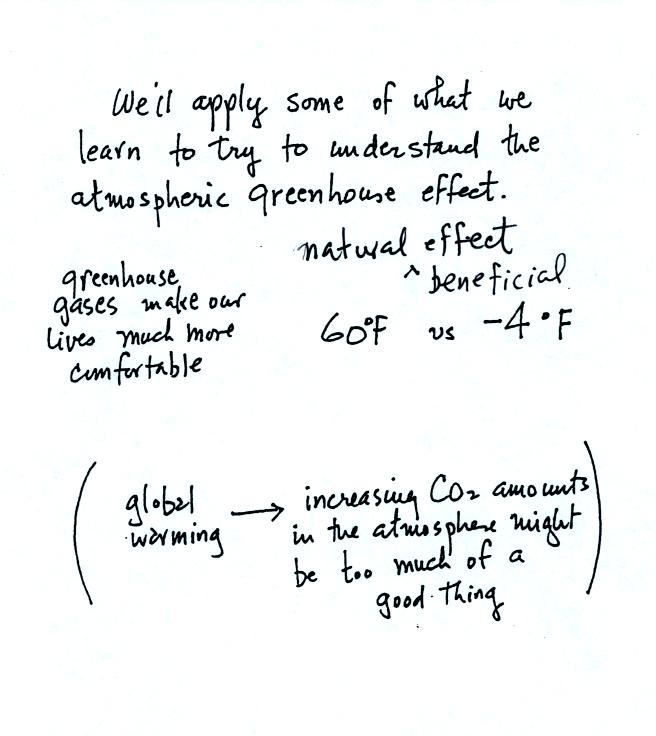 We'll apply some of what we
learn to try to understand the
atmospheric greenhouse effect.
natural effect
^ beneficial
greenhouse
gases make our
lives much more
comfortable
60°F vs -4°F
(global
warming
→ increasing CO₂ amounts
in the atmosphere might
be too much of a
good thing)